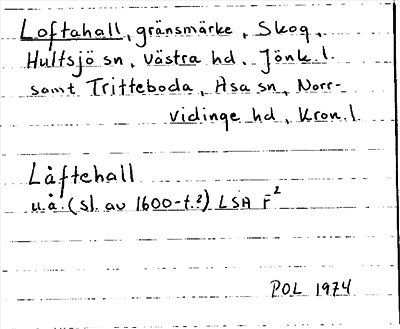 Loftahall, gränsmärke, Skog,
Hultsjö sn, Västra hd, Jönk.l.
samt Tritteboda, Asa sn, Norr-
vidinge hd, Kron.l.
Låftehall
u.å. (sl. av 1600-t.?) LSA F²
POL 1974